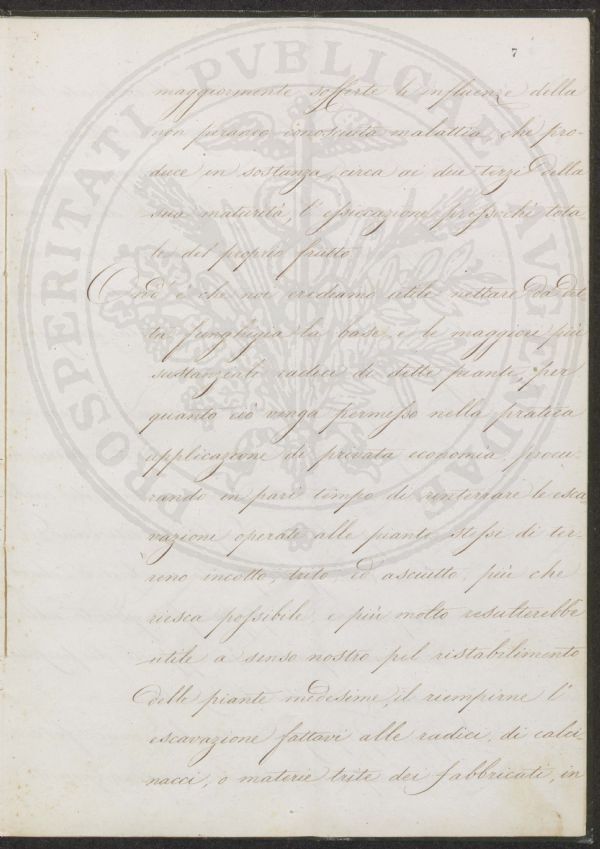 7
maggiormente sofferte le influenze della
non peranco conosciuta malattia, che pro-
duce in sostanza, circa ai due terzi della
sua maturità, l'essicazione pressochè tota
le del proprio frutto.
Ond' è che noi crediamo utile nettare da det-
ta funghigia la base, e le maggiori più
sustanziali radici di dette piante, per
quanto ciò venga permesso nella pratica
applicazione di privata economia, procu-
rando in pari tempo di rinterrare le esca-
vazione operate alle piante stesse di ter-
reno incotto, trito, ed asciutto, più che
riesca possibile, e più molto resulterebbe
utile a senso nostro pel ristabilimento
delle piante medesime, il riempirne l'
escavazione fattavi alle radici, di calci-
nacci, o materie trite dei fabbricati, in
PROSPERITATI PVBLICAE AVGENDAE